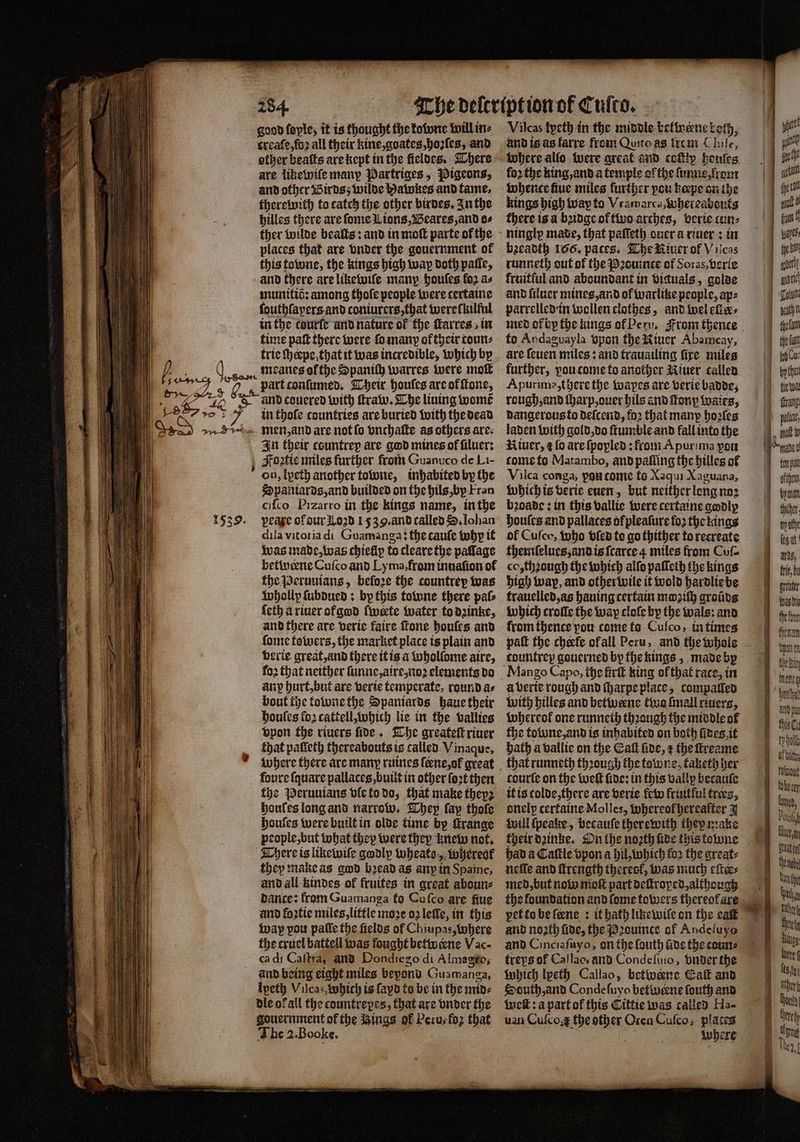 284
The description of Cusco.
good soyle, it is thought the towne will in-
crease, for all their kine, goates, horses, and
other beasts are kept in the fieldes. There
are likewise many Partriges, Pigeons,
and other Birds, wilde Hawkes and tame,
therewith to catch the other birdes. In the
hilles there are some Lions, Beares, and o-
ther wilde beasts: and in most parte of the
places that are vnder the gouernment of
this towne, the kings high way doth passe,
and there are likewise many houses for a-
munitiō: among those people were certaine
southsayers and coniurers, that were skilful
in the course and nature of the starres, in
time past there were so many of their coun-
trie sheepe, that it was incredible, which by
meanes of the Spanish warres were most
part consumed. Their houses are of stone,
and couered with straw. The liuing womē
in those countries are buried with the dead
men, and are not so vnchaste as others are.
In their countrey are good mines of siluer:
Fortie miles further from Guanuco de Li-
on, lyeth another towne, inhabited by the
Spaniards, and builded on the hils, by Fran
cisco Pizarro in the kings name, in the
1539.
yeare of our Lord 1539. and called S. Iohan
dila vitoria di Guamanga: the cause why it
was made, was chiefly to cleare the passage
betweene Cusco and Lyma, from inuasion of
the Peruuians, before the countrey was
wholly subdued: by this towne there pas-
seth a riuer of good sweete water to drinke,
and there are verie faire stone houses and
some towers, the market place is plain and
verie great, and there it is a wholsome aire,
for that neither sunne, aire, nor elements do
any hurt, but are verie temperate, round a-
bout the towne the Spaniards haue their
houses for cattell, which lie in the vallies
vpon the riuers side. The greatest riuer
that passeth thereabouts is called Vinaque,
where there are many ruines seene, of great
foure square pallaces, built in other sort then
the Peruuians vse to do, that make theyr
houses long and narrow. They say those
houses were built in olde time by strange
people, but what they were they knew not.
There is likewise goodly wheate, whereof
they make as good bread as any in Spaine,
and all kindes of fruites in great aboun-
dance: from Guamanga to Cusco are fiue
and fortie miles, little more or lesse, in this
way you passe the fields of Chiupas, where
the cruel battell was fought betweene Vac-
ca di Castra, and Dondiego di Almagro,
and being eight miles beyond Guamanga,
lyeth Vilcas, which is sayd to be in the mid-
dle of all the countreyes, that are vnder the
gouernment of the Kings of Peru, for that
The 2. Booke.
Vilcas lyeth in the middle betweene both,
and is as farre from Quito as from Chile,
where also were great and costly houses
for the king, and a temple of the sunne, from
whence fiue miles further you keepe on the
kings high way to Vramarca, whereabouts
there is a bridge of two arches, verie cun-
ningly made, that passeth ouer a riuer: in
breadth 166. paces. The Riuer of Vilcas
runneth out of the Prouince of Soras, verie
fruitful and aboundant in victuals, golde
and siluer mines, and of warlike people, ap-
parrelled in wollen clothes, and wel estee-
med of by the kings of Peru. From thence
to Andaguayla vpon the Riuer Abameay,
are seuen miles: and trauailing sixe miles
further, you come to another Riuer called
Apurima, there the wayes are verie badde,
rough, and sharp, ouer hils and stony waies,
dangerous to descend, for that many horses
laden with gold, do stumble and fall into the
Riuer, & so are spoyled: from Apurima you
come to Matambo, and passing the hilles of
Vilca conga, you come to Xaqui Xaguana,
which is verie euen, but neither long nor
broade: in this vallie were certaine goodly
houses and pallaces of pleasure for the kings
of Cusco, who vsed to go thither to recreate
themselues, and is scarce 4. miles from Cus-
co, through the which also passeth the kings
high way, and otherwise it wold hardlie be
trauelled, as hauing certain moorish groūds
which crosse the way close by the wals: and
from thence you come to Cusco, in times
past the cheefe of all Peru, and the whole
countrey gouerned by the kings, made by
Mango Capo, the first king of that race, in
a verie rough and sharpe place, compassed
with hilles and betweene two small riuers,
whereof one runneth through the middle of
the towne, and is inhabited on both sides, it
hath a vallie on the East side, & the streame
that runneth through the towne, taketh her
course on the west side: in this vally because
it is colde, there are verie few fruitful trees,
onely certaine Molles, whereof hereafter I
will speake, because therewith they make
their drinke. On the north side this towne
had a Castle vpon a hil, which for the great-
nesse and strength thereof, was much estee-
med, but now most part destroyed, although
the foundation and some towers thereof are
yet to be seene: it hath likewise on the east
and north side, the Prouince of Andesuyo
and Cinciasuyo, on the south side the coun-
treys of Callao, and Condesuio, vnder the
which lyeth Callao, betweene East and
South, and Condesuyo betweene south and
west: a part of this Cittie was called Ha-
uan Cusco, & the other Oren Cusco, places
where